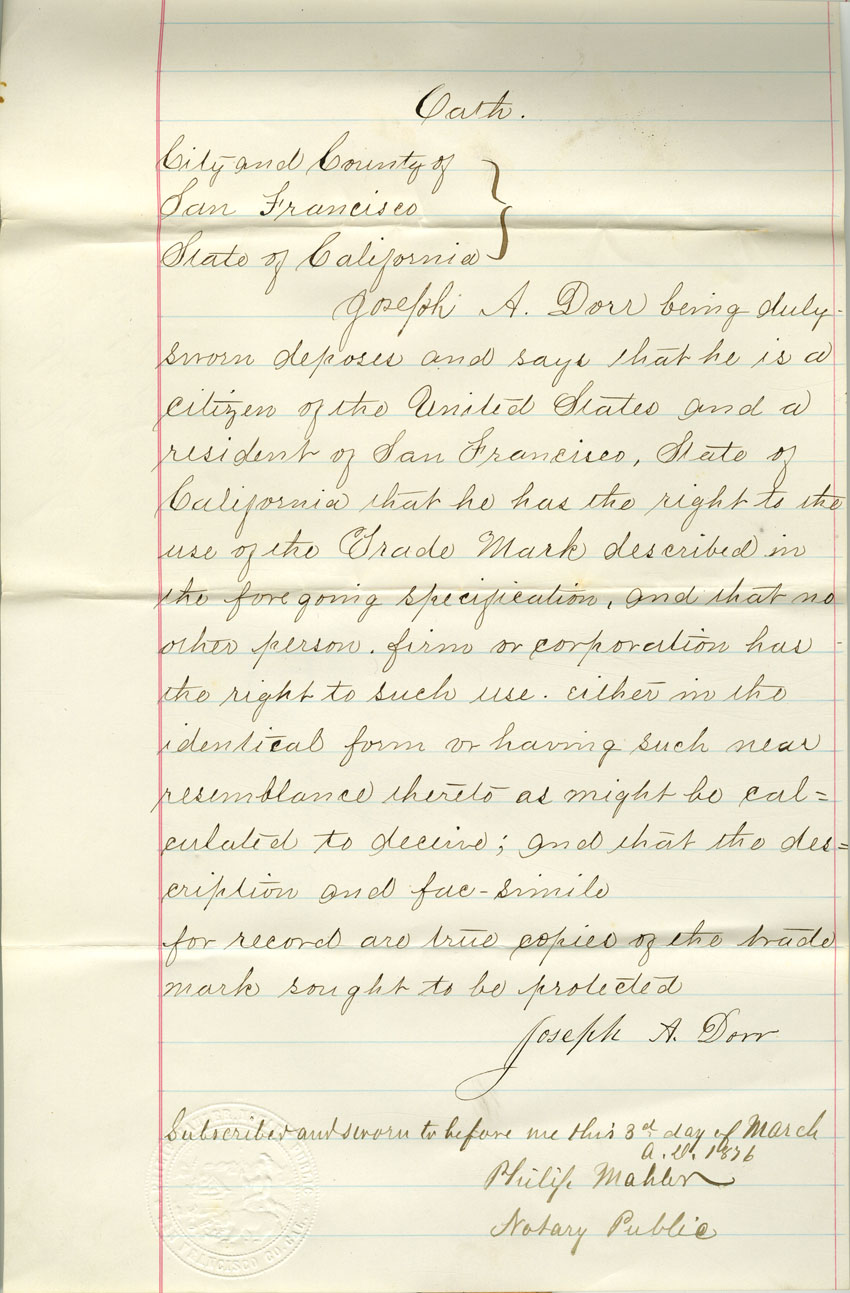 Oath.
City and County of
San Francisco
State of California
Joseph A. Dorr being duly
sworn deposes and says that he is a
citizen of the United States and a
resident of San Francisco, State of
California that he has the right to the
use of the Trade Mark described in
the foregoing specification, and that no
other person. firm or corporation has
the right to such use. either in the
identical form or having such near
resemblance thereto as might be cal=
culated to deceive; and that the des=
cription and fac-simile
for record are true copies of the trade
mark sought to be protected
Joseph A. Dorr
Subscribed and sworn to before me this 3rd day of March
A.D. 1876
Philip Mahler
Notary Public
FRANCISCO CO. CAL.